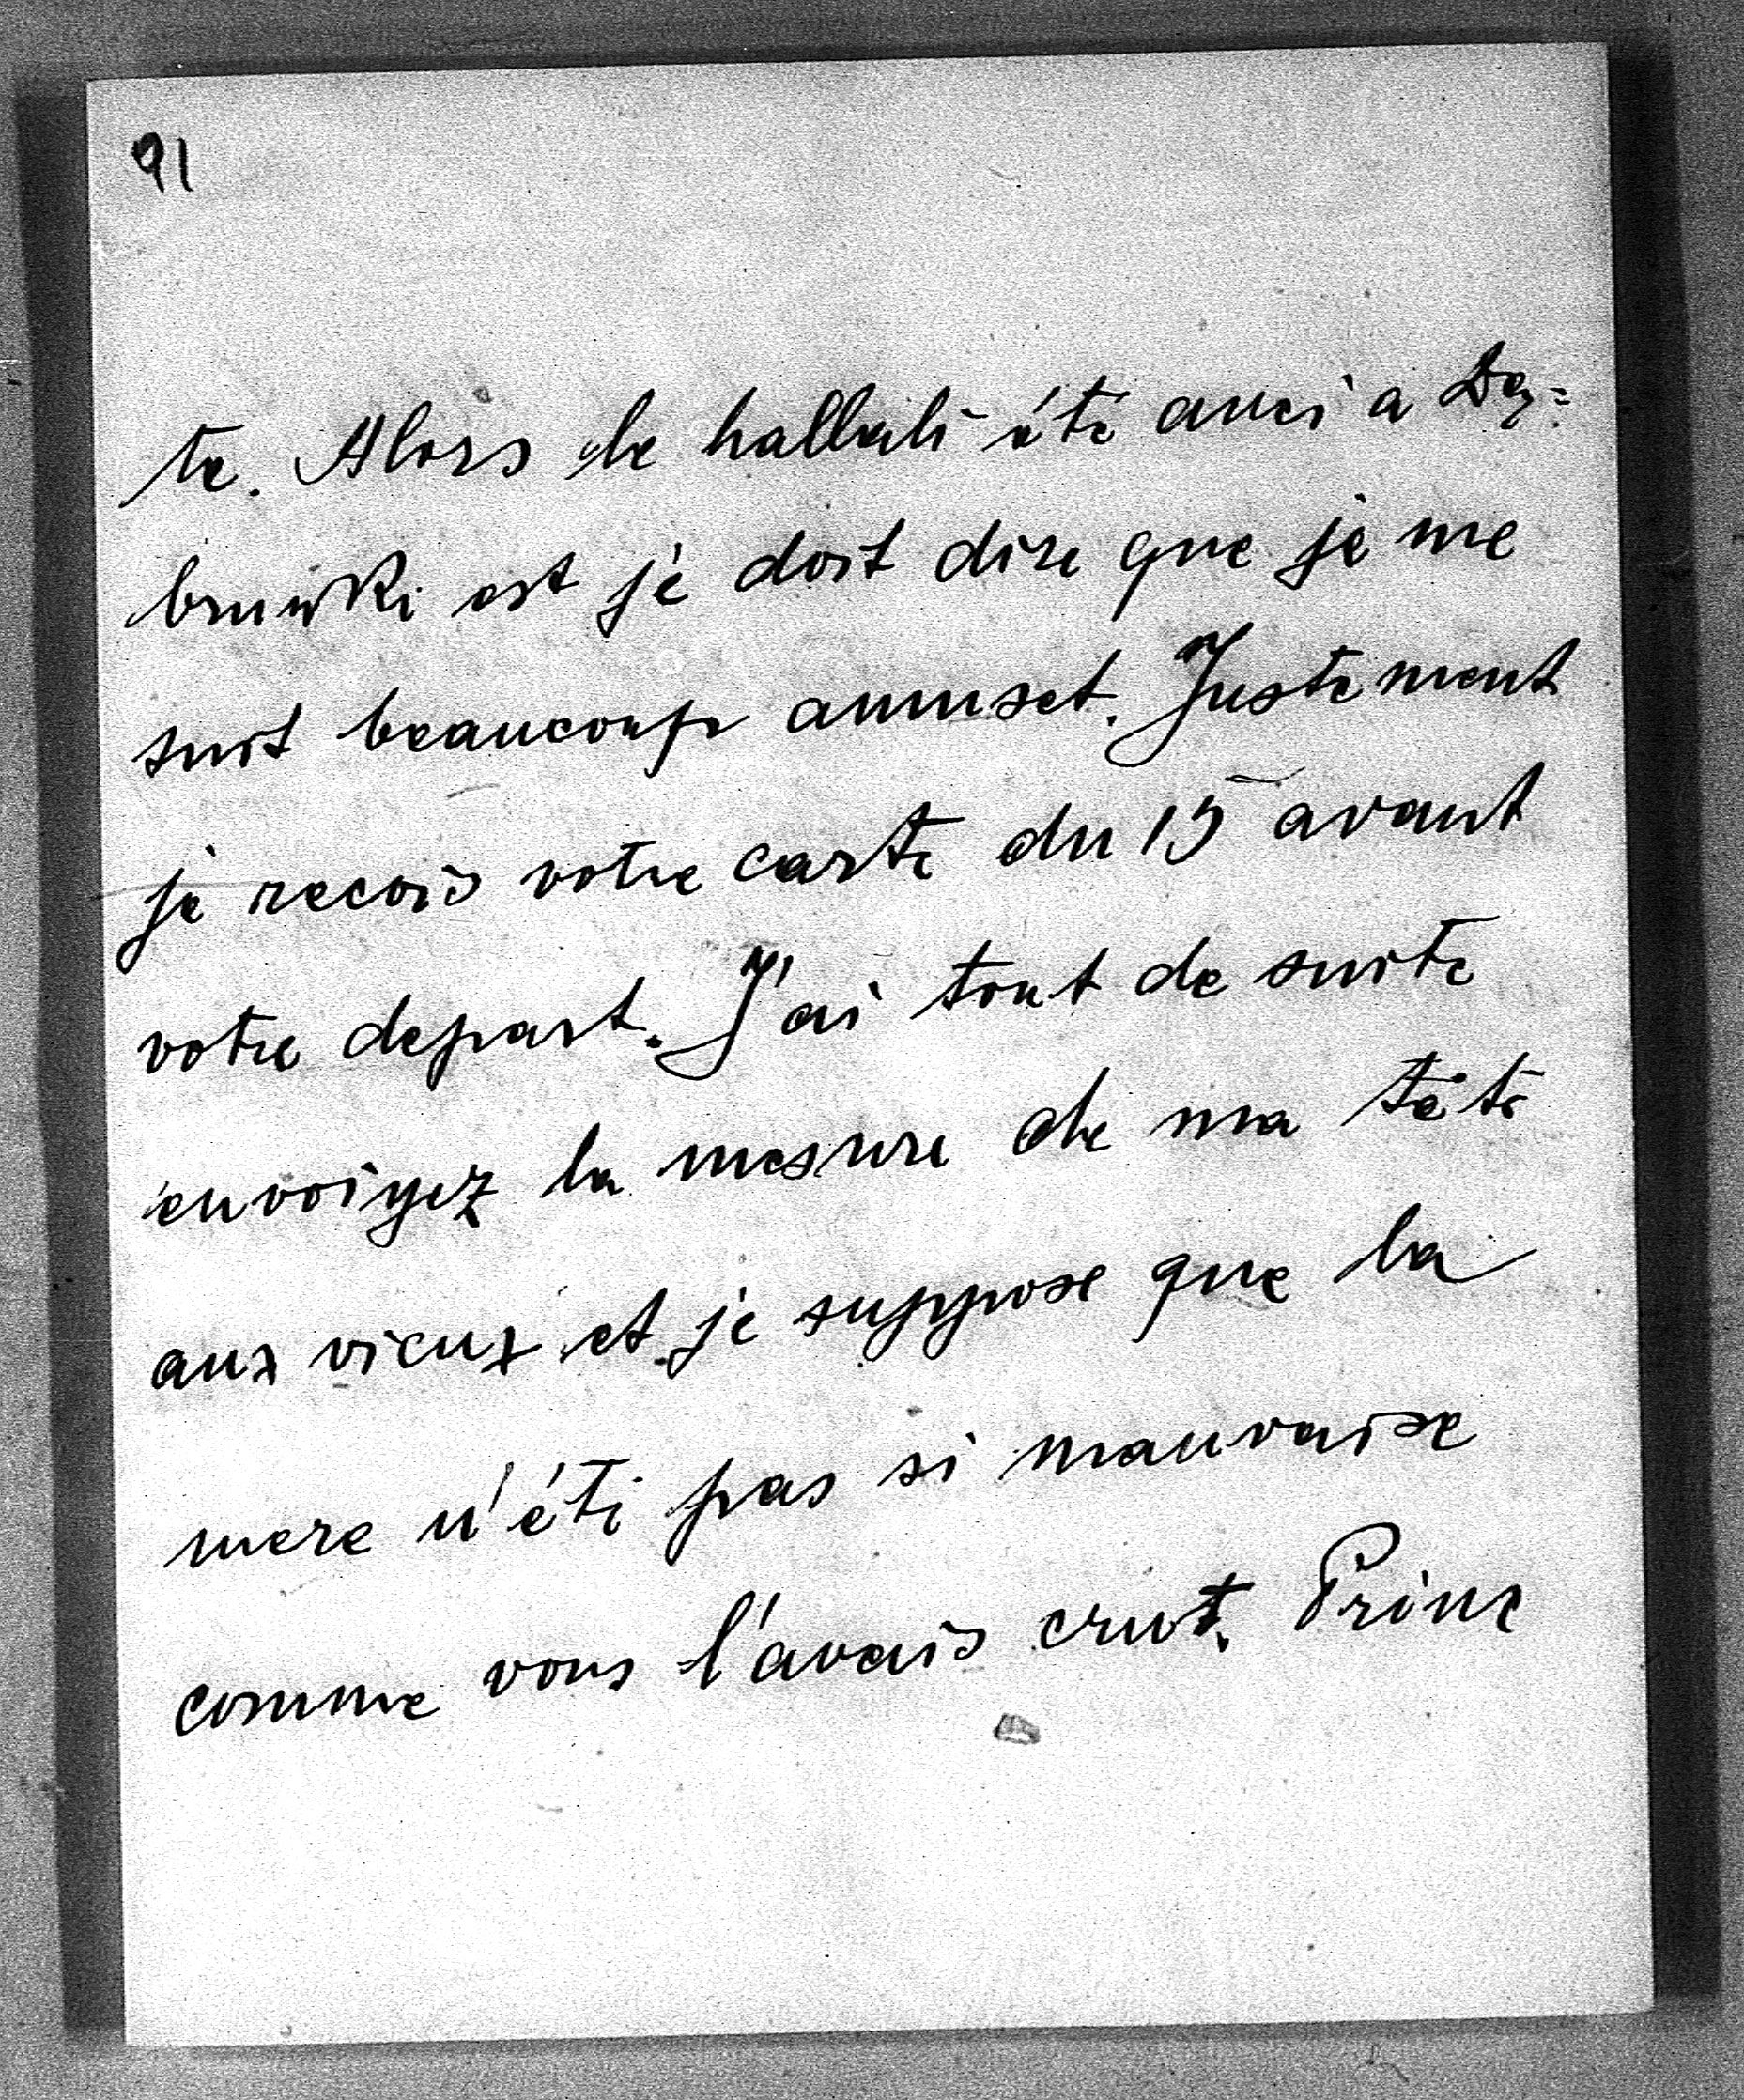 91
te. Alors le hallali été auci a Dem=
bruwki est je doit dire que je me
suit beaucoup amuset. Justement
je recois votre carte du 15 avant
votre depart. J'ai tout de suite
envoiyez la mesure de ma tête
aux vieux et je suppose que la
mere n'éti pas si mauvaise
comme vous l'avais crut. Prinz